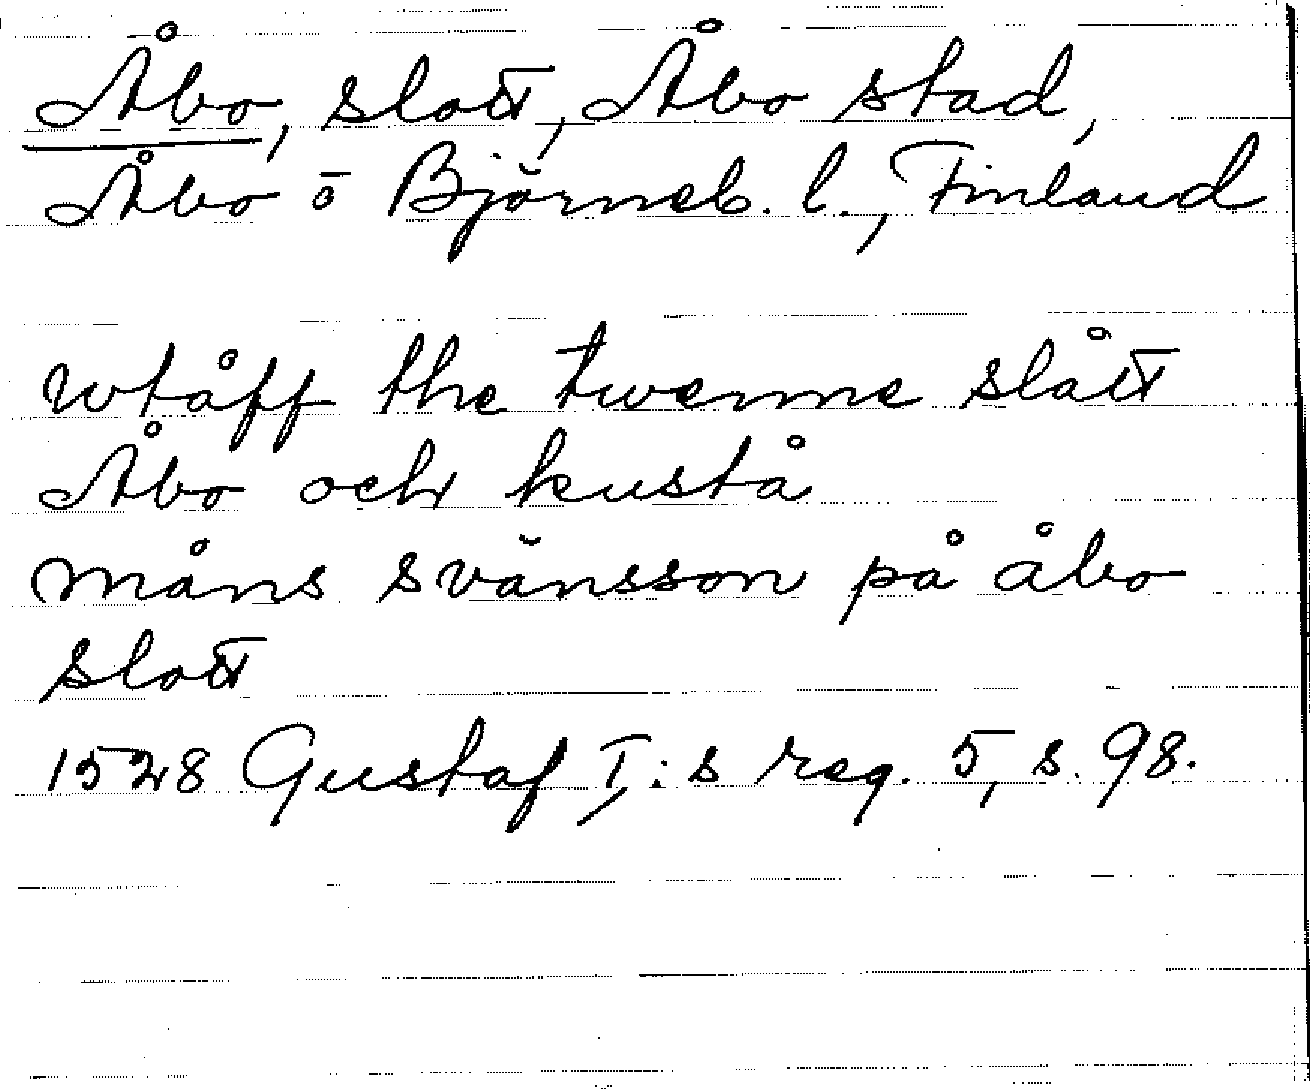 Åbo, slott, Åbo stad,
Åbo o Björneb. l., Finland
wtåff the twenne slått
Åbo och kustå
måns svänsson på åbo
slott
1528 Gustaf I:s reg. 5, s. 98.